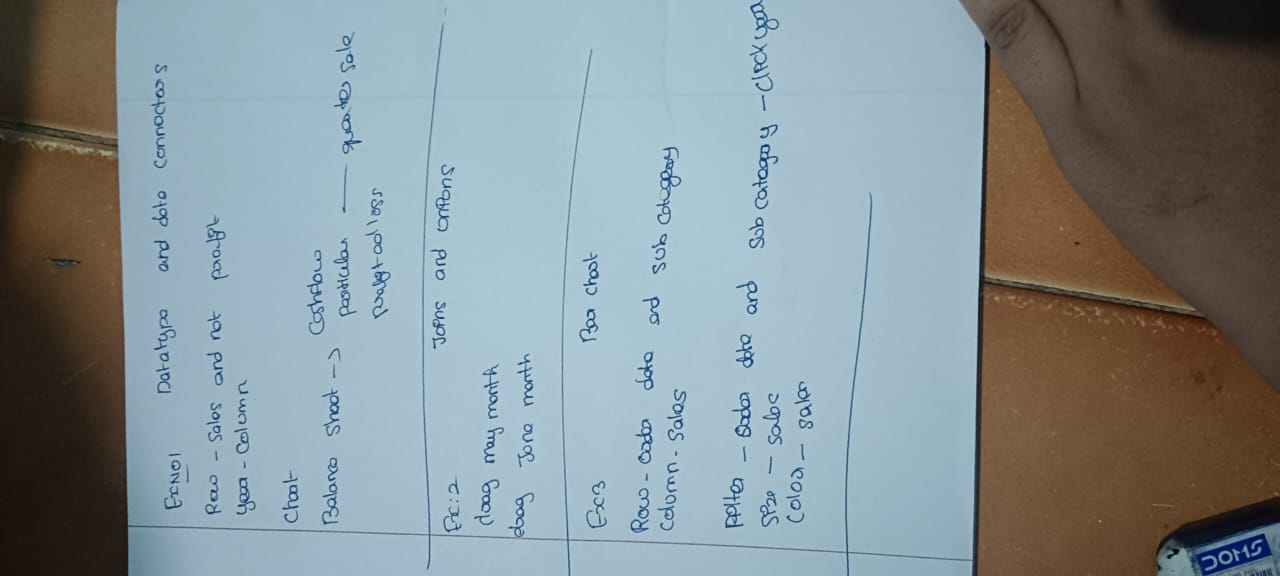 Ex:No1 Datatype and data connectors
Row - Sales and net profit
year - Column
Chart
Balance sheet -> Cashflow
particular — quarter sale
profit and loss
Ex:2 Joins and unions
drag may month
drag June month
Ex3 Bar chart
Row - order date and sub category
Column - Sales
filter - order date and sub category - click year
Size - sales
Color - sales
DOMS